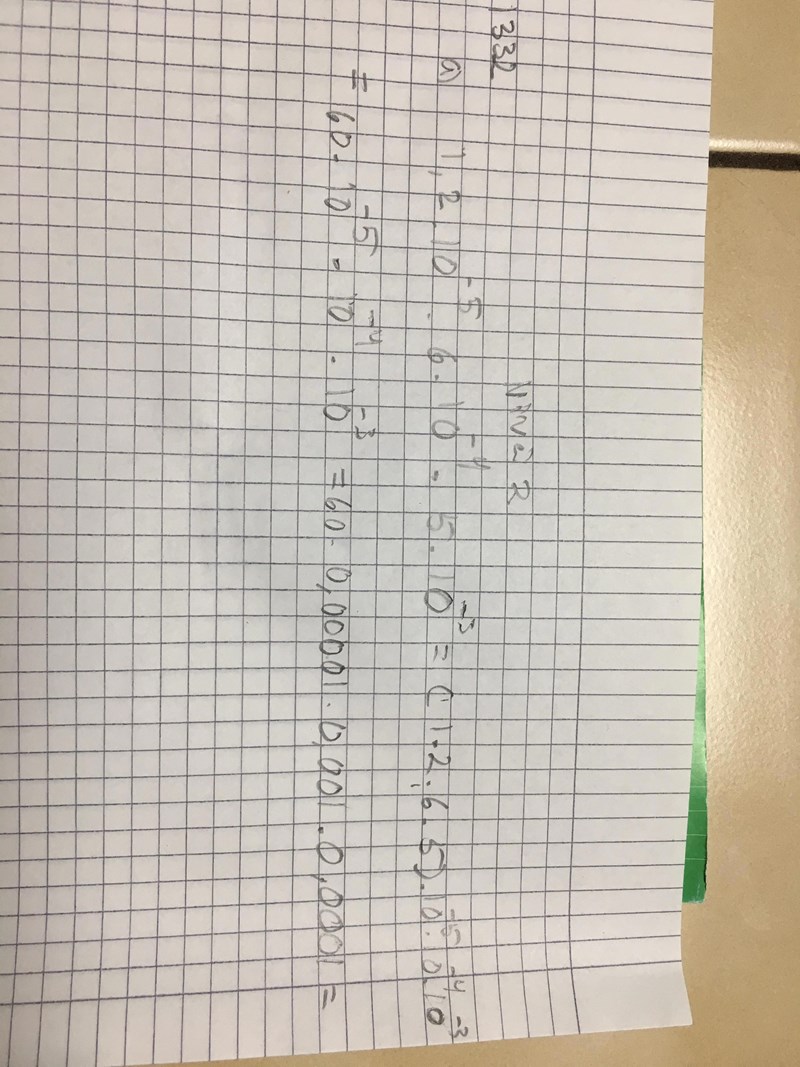 1332
a) 1,2.10⁻⁵.6.10⁻⁴.5.10⁻³ = (1.2.6.5).10⁻⁵.10⁻⁴.10⁻³
= 60.10⁻⁵.10⁻⁴.10⁻³ = 60.0,00001.0,001.0,0001 =